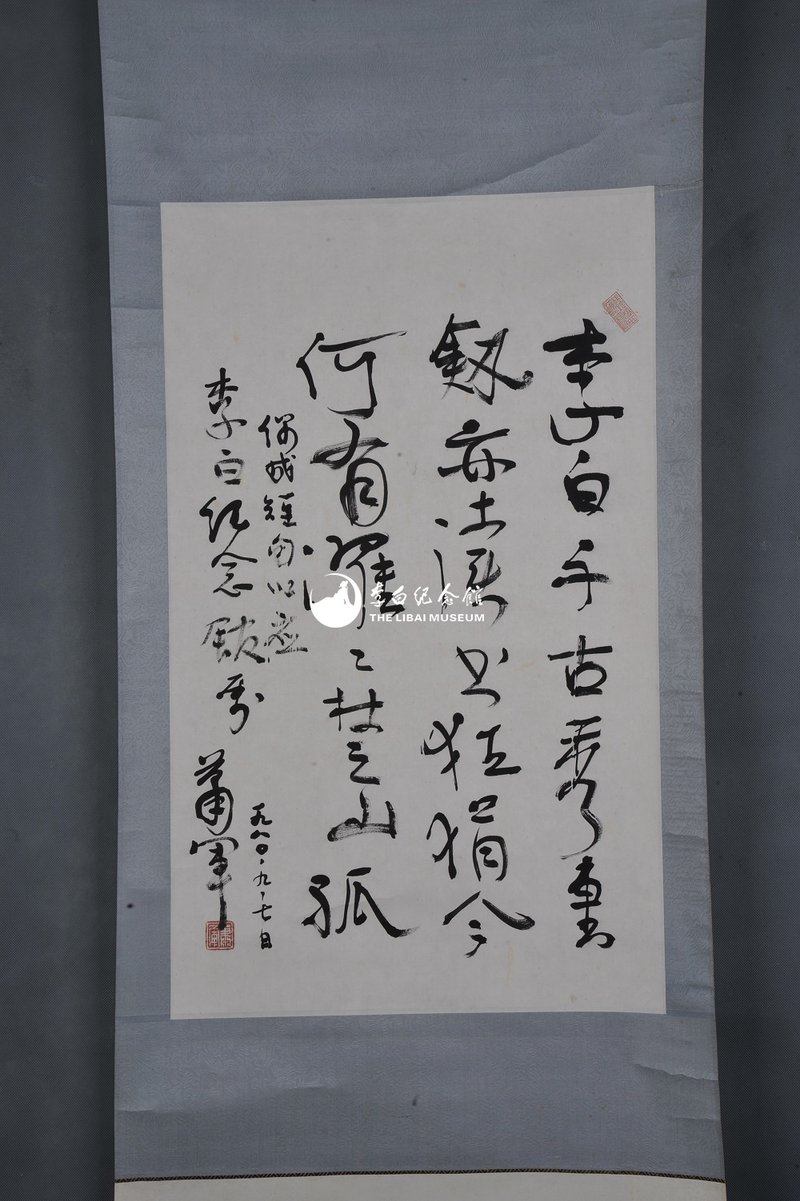 李白千古秀
釼亦江湖狂狷今
何有濯々楚山孤
偶成短句以应
李白纪念馆
萧军
一九八〇.九.七日
李白纪念馆
THE LIBAI MUSEUM